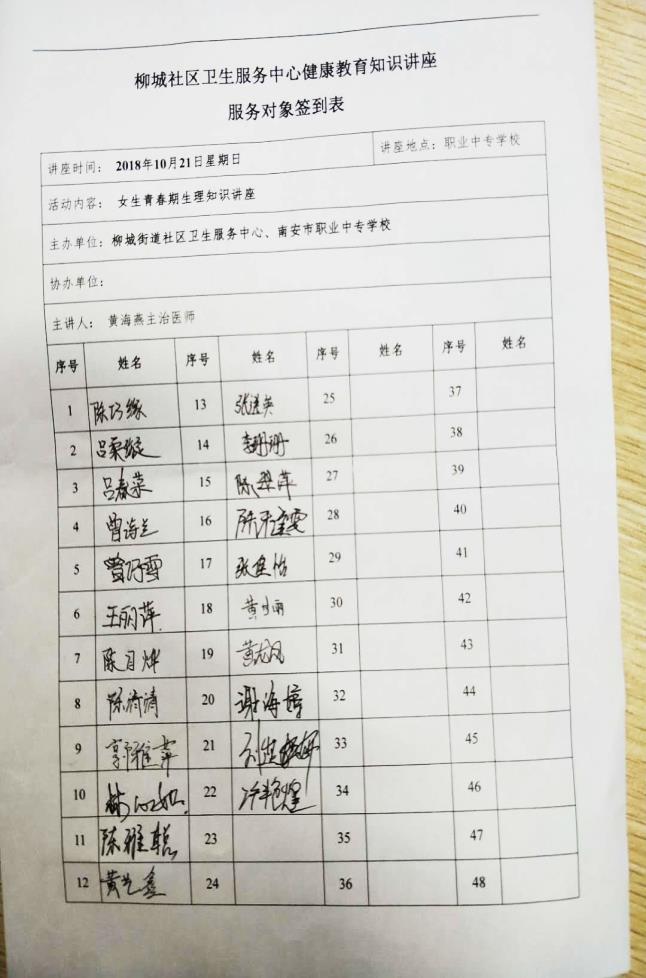 柳城社区卫生服务中心健康教育知识讲座
服务对象签到表
讲座时间： 2018年10月21日星期日 讲座地点：职业中专学校
活动内容： 女生青春期生理知识讲座
主办单位：柳城街道社区卫生服务中心、南安市职业中专学校
协办单位：
主讲人： 黄海燕主治医师
序号 姓名 序号 姓名 序号 姓名 序号 姓名
1 陈巧缘 13 张莲英 25 37
2 吕 14 李珊珊 26 38
3 吕春菜 15 陈翠萍 27 39
4 曾诗兰 16 28 40
5 曾巧雪 17 张佳怡 29 41
6 王丽萍 18 黄 丽 30 42
7 陈月烨 19 黄龙凤 31 43
8 陈清清 20 谢海婷 32 44
9 郭雅萍 21 33 45
10 林心如 22 34 46
11 陈雅 23 35 47
12 黄艺鑫 24 36 48